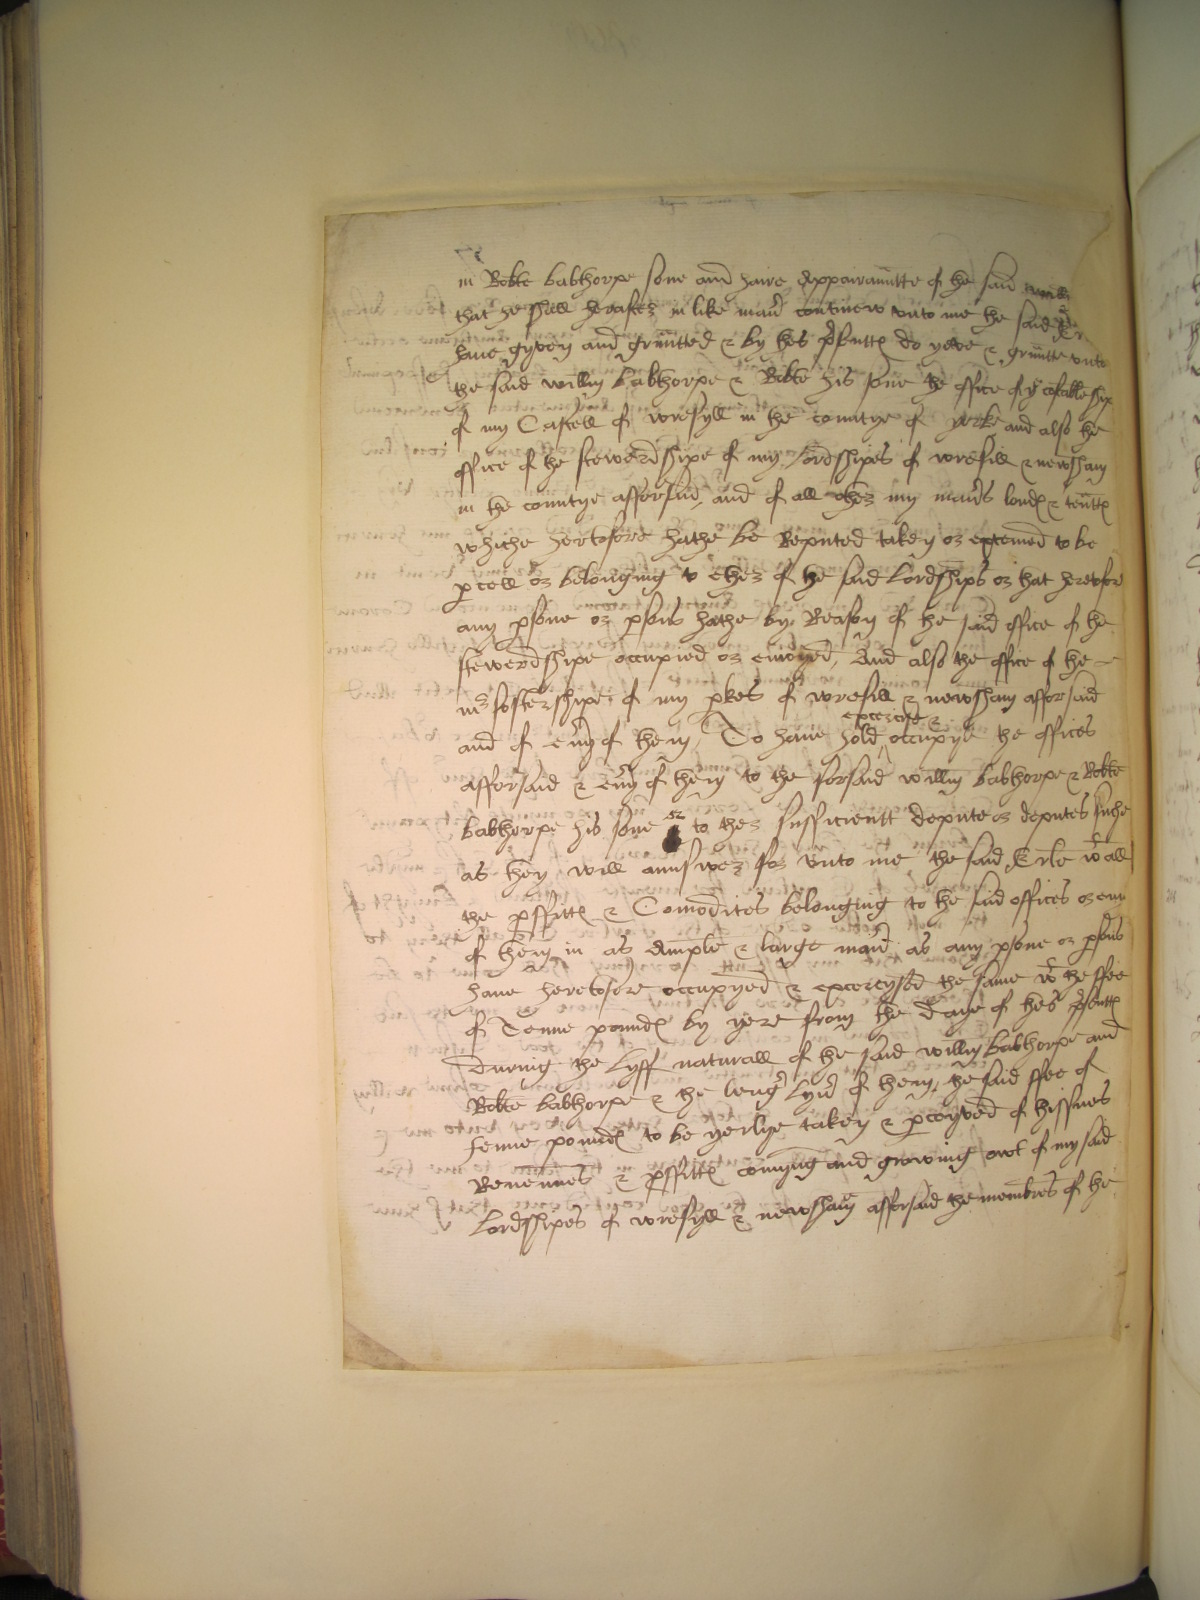 in Robte babthorpe sone and haire apparauntte of the said
that he shall hereafter in like maner contineu vnto me the said
haue gyven and graūtted & by thes pñttꝭ do yeve & graūtte vnto
the said willm babthorpe & Robte his sone the office of yͤ
of my Castell of wresyll in the countye of yorke and also the
office of the stewerdshipe of my lordshipes of wresill & newsham
in the countye afforsaid, and of all other my maners londꝭ & tenttꝭ
whiche hertofore hathe be Reputed taken or estemed to be
ꝑcell or belonging to ether of the said Lordshipes or that heretofore
any ꝑsone or ꝑsons hathe by Reason of the said office of the
stewerdshipe occupied or enioyed, And also the office of the
mʳ fosterships of my ꝑkes of wresill & newsham afforsaid
and of eu'y of them, To haue hold exercise & occupye the offices
afforsaid & eu'y of them to the forsaid willm babthorpe & Robte
babthorpe his sone or to ther sufficientt depute or deputes suche
as they will aunswer for vnto me the said Erle wͭ all
the ꝓffittꝭ & Comodites belonging to the said offices or eny
of them in as ample & large maner as any ꝑsone or ꝑsons
haue heretofore occupyed & excercysed the same wͭ the ffee
of Tenne poundꝭ by yere from the daye of thes pñttꝭ
During the Lyff naturall of the said willm babthorpe and
Robte babthorpe & the leng' lyu' of them, the said ffee of
tenne poundꝭ to be yerlye taken & ꝑceyved of thissues
Revenues & ꝓffittꝭ comyng and growing owt of my said
Lordshipes of wresyll & newsham afforsaid the membres of the